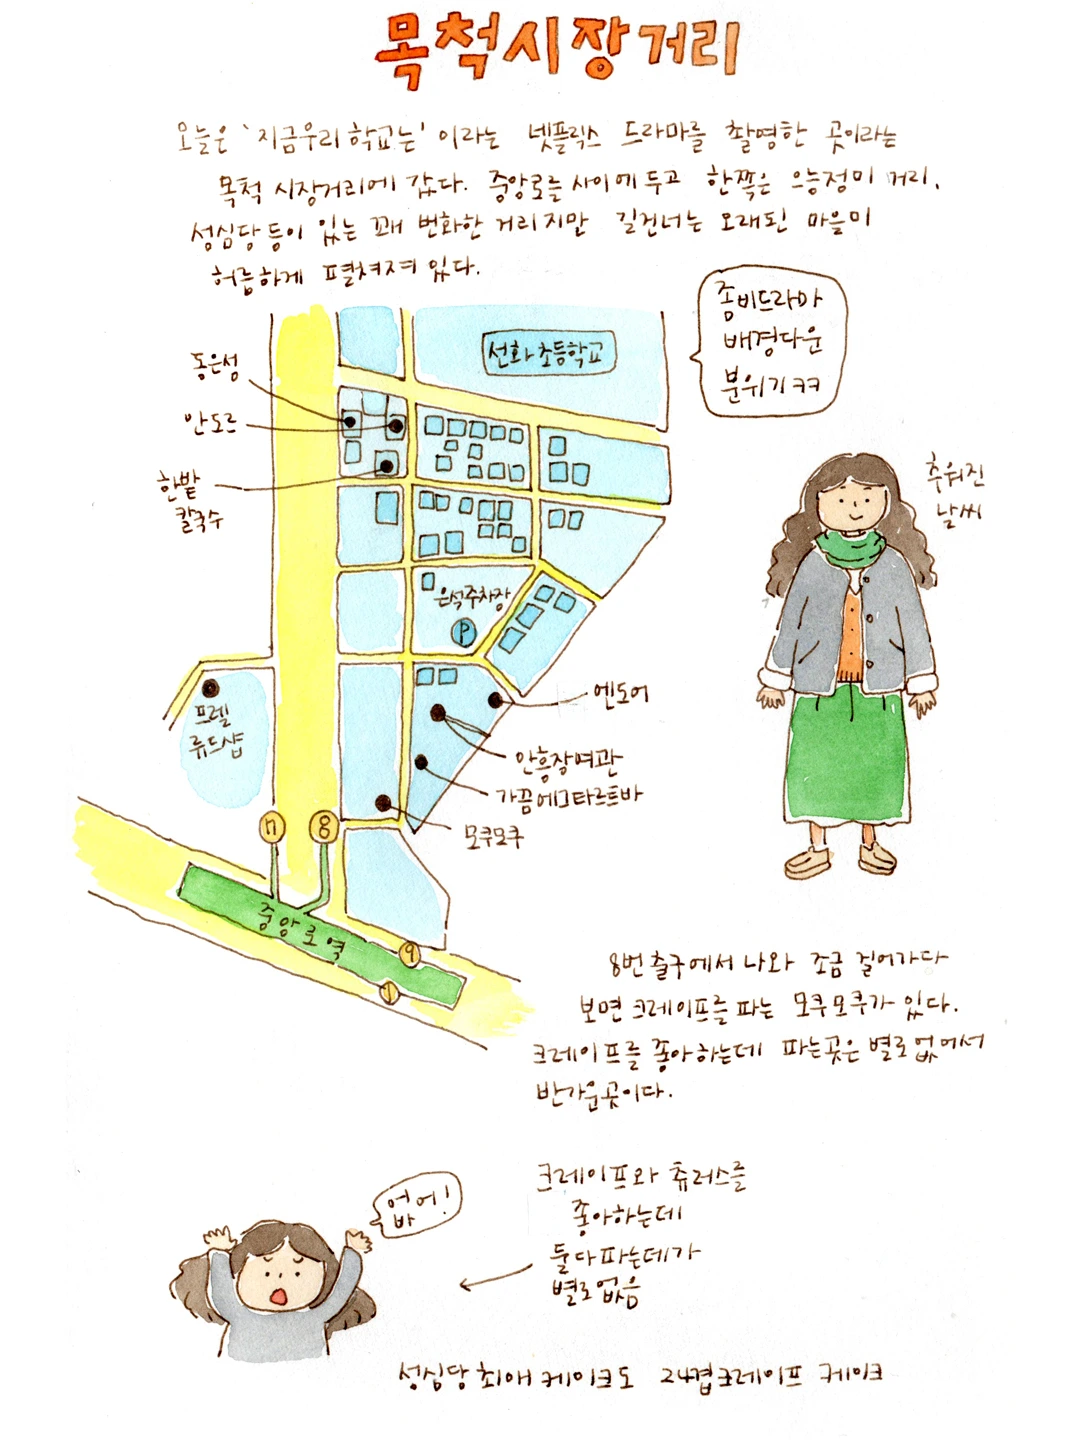 목척시장거리
오늘은 '지금우리 학교는' 이라는 넷플릭스 드라마를 촬영한 곳이라는
목척 시장거리에 갔다. 중앙로를 사이에 두고 한쪽은 으능정이 거리,
성심당 등이 있는 꽤 번화한 거리지만 길건너는 오래된 마을이
허름하게 펼쳐져 있다.
좀비드라마
배경다운
분위기 ㅋㅋ
선화초등학교
동은성
안도르
한밭
칼국수
추워진
날씨
은석주차장
P
프렐
류드샵
엔도어
안흥장여관
가끔에그타르트바
모쿠모쿠
7
8
중앙로역
9
1
8번 출구에서 나와 조금 걸어가다
보면 크레이프를 파는 모쿠모쿠가 있다.
크레이프를 좋아하는데 파는곳은 별로 없어서
반가운곳이다.
크레이프와 츄러스를
좋아하는데
둘다파는데가
별로없음
없어!
성심당 최애 케이크도 24겹크레이프 케이크